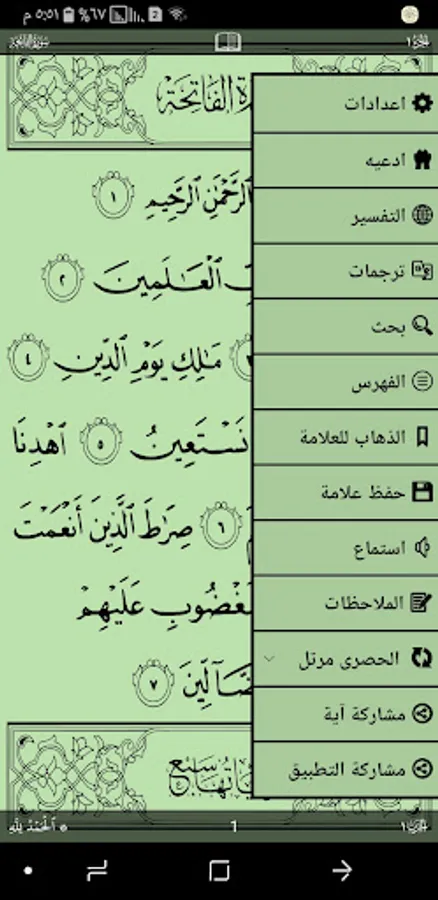 ٥:٥١ م ٦٧%
سورة الفاتحة الجزء ١
رة الفاتحة
الرَّحْمَٰنِ الرَّحِيمِ ١
الْعَالَمِينَ ٢
مَالِكِ يَوْمِ الدِّينِ ٤
نَسْتَعِينُ ٥ اهْدِنَا
٦ صِرَاطَ الَّذِينَ أَنْعَمْتَ
عَلَيْهِمْ
٧
اعدادات
ادعيه
التفسير
ترجمات
بحث
الفهرس
الذهاب للعلامة
حفظ علامة
استماع
الملاحظات
الحصرى مرتل
مشاركة آية
مشاركة التطبيق
سبع
الجزء ١ 1 ٱلْحَمْدُ لِلَّهِ